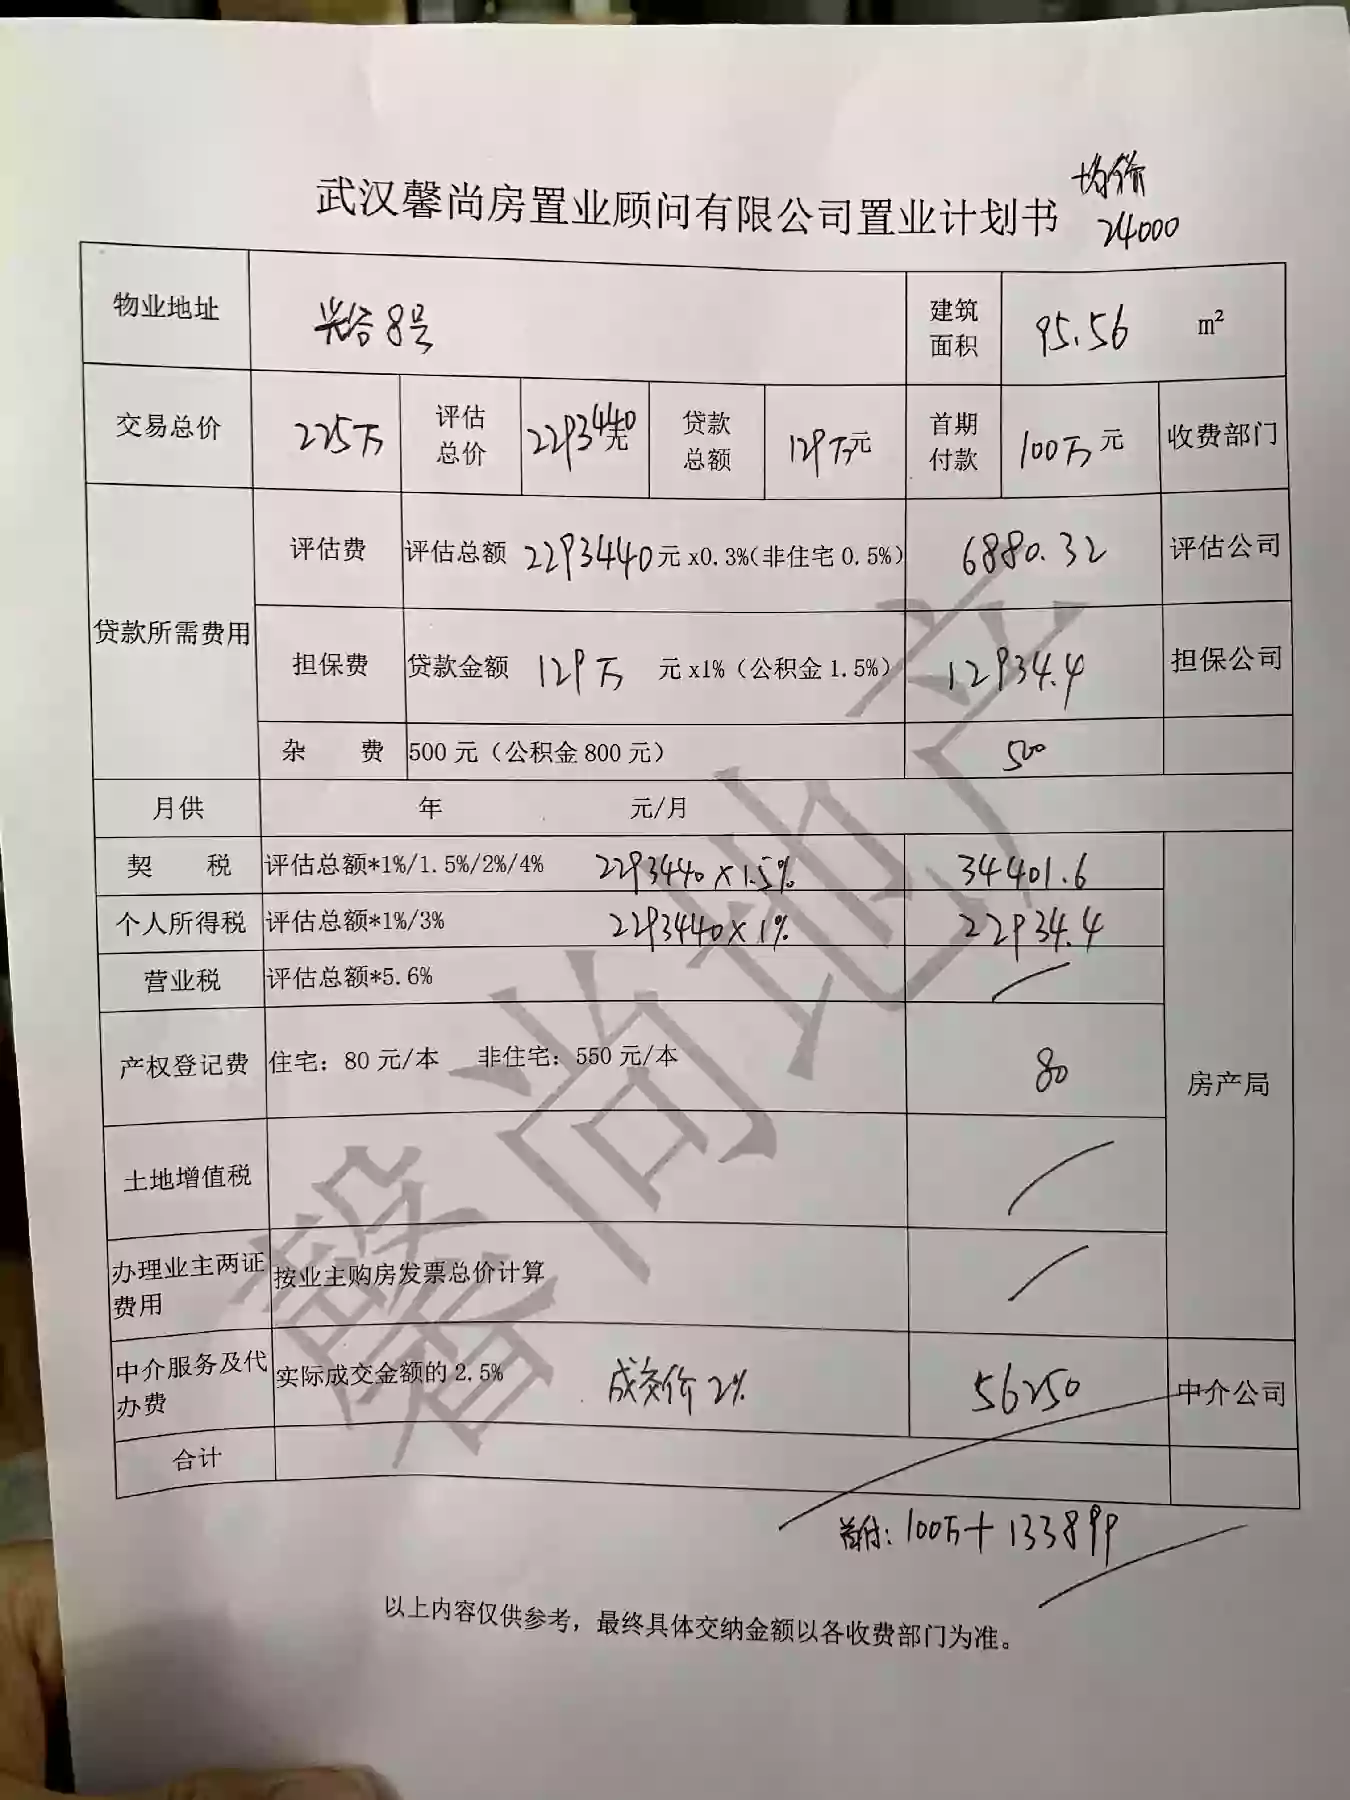 武汉馨尚房置业顾问有限公司置业计划书
均价
24000
物业地址 8号 建筑面积 95.56 m²
交易总价 225万 评估总价 2293440元 贷款总额 129万元 首期付款 100万元 收费部门
贷款所需费用
评估费 评估总额 2293440元 x0.3%(非住宅0.5%) 6880.32 评估公司
担保费 贷款金额 129万 元 x1%（公积金1.5%） 12934.4 担保公司
杂 费 500元（公积金800元） 500
月供 年 元/月
契 税 评估总额*1%/1.5%/2%/4% 2293440×1.5% 34401.6
个人所得税 评估总额*1%/3% 2293440×1% 22934.4
营业税 评估总额*5.6% /
产权登记费 住宅：80元/本 非住宅：550元/本 80 房产局
土地增值税 /
办理业主两证费用 按业主购房发票总价计算 /
中介服务及代办费 实际成交金额的2.5% 成交价2% 56250 中介公司
合计
首付：100万+133899
以上内容仅供参考，最终具体交纳金额以各收费部门为准。
馨尚地产